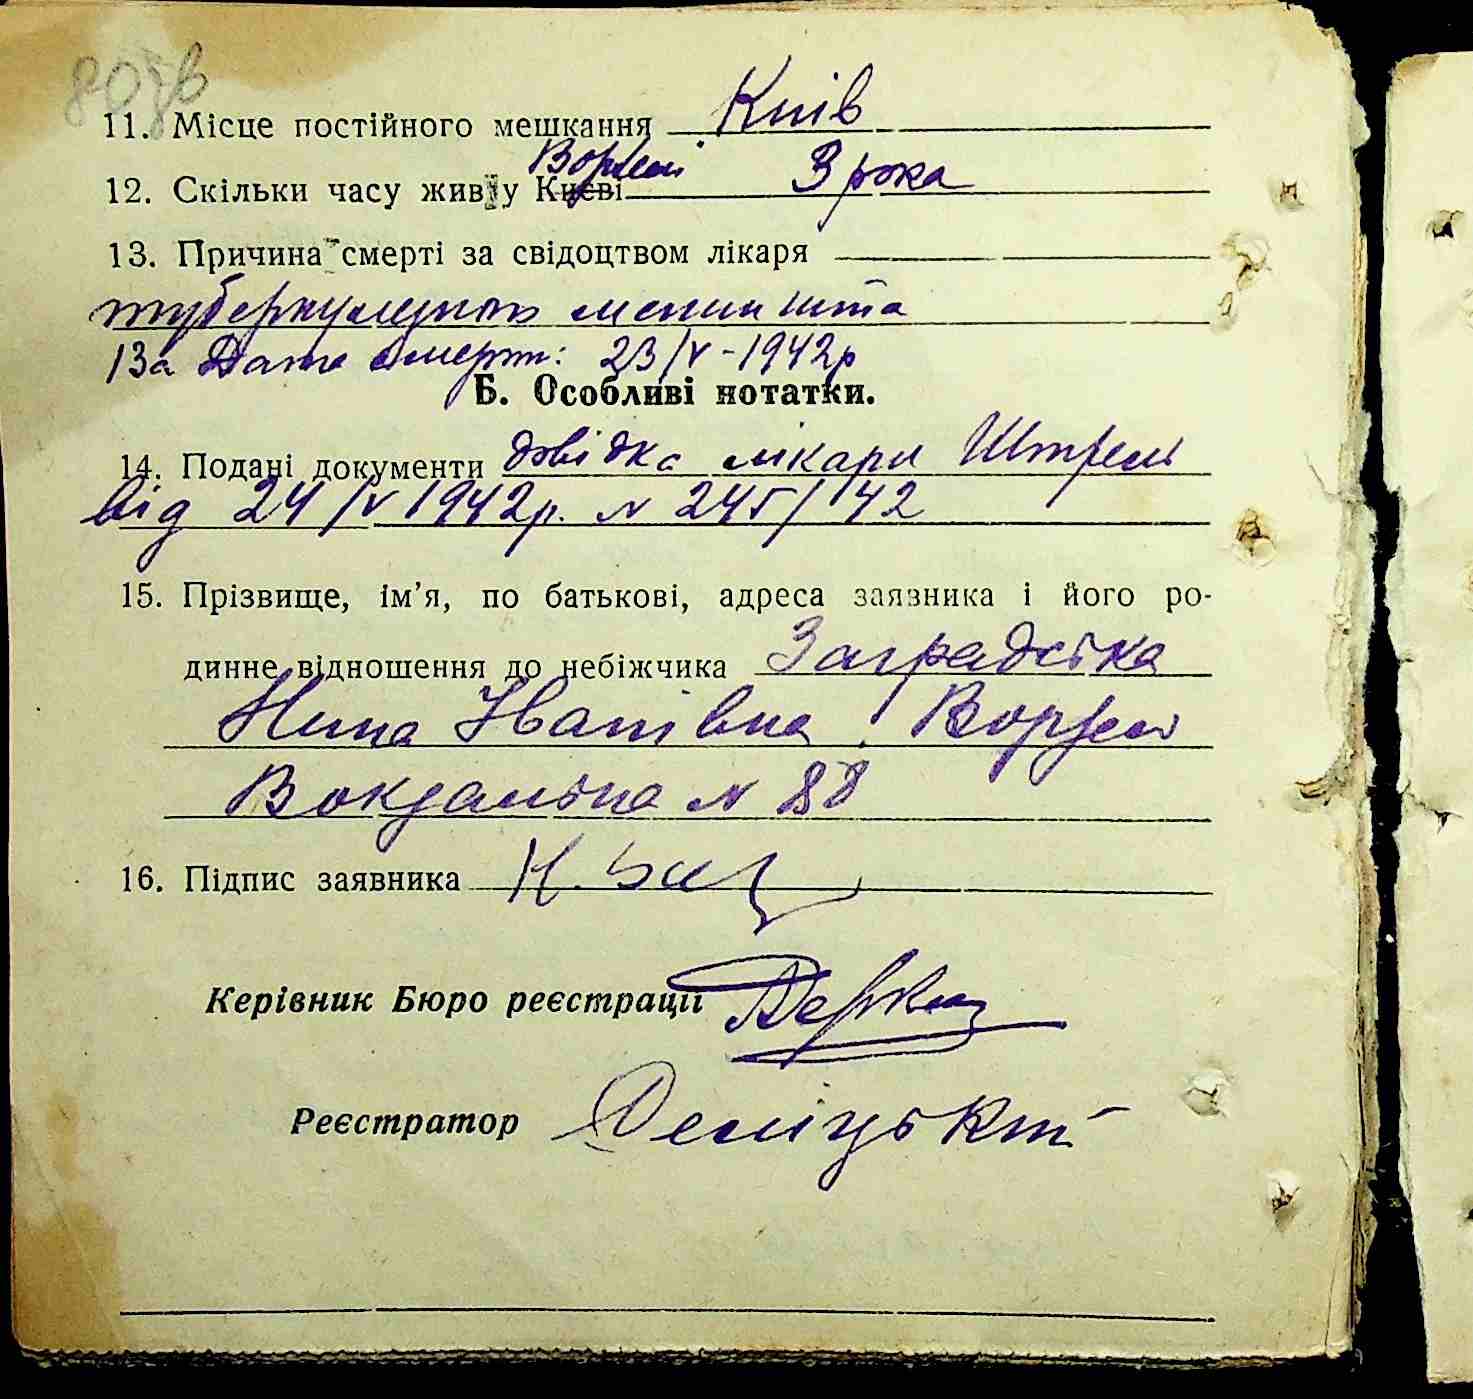 80 зв
11. Місце постійного мешкання Київ
Ворзелі
12. Скільки часу жив у Києві 3 рока
13. Причина смерті за свідоцтвом лікаря
туберкулезного менингита
13а Дата смерти: 23/V-1942р
Б. Особливі нотатки.
14. Подані документи довідка лікари Штрель
від 24/V 1942р. N 245/42
15. Прізвище, ім’я, по батькові, адреса заявника і його ро-
динне відношення до небіжчика Заградська
Нина Іванівна, Ворзель
Вокзальна N 88
16. Підпис заявника Н. Заг
Керівник Бюро реєстрації
Реєстратор